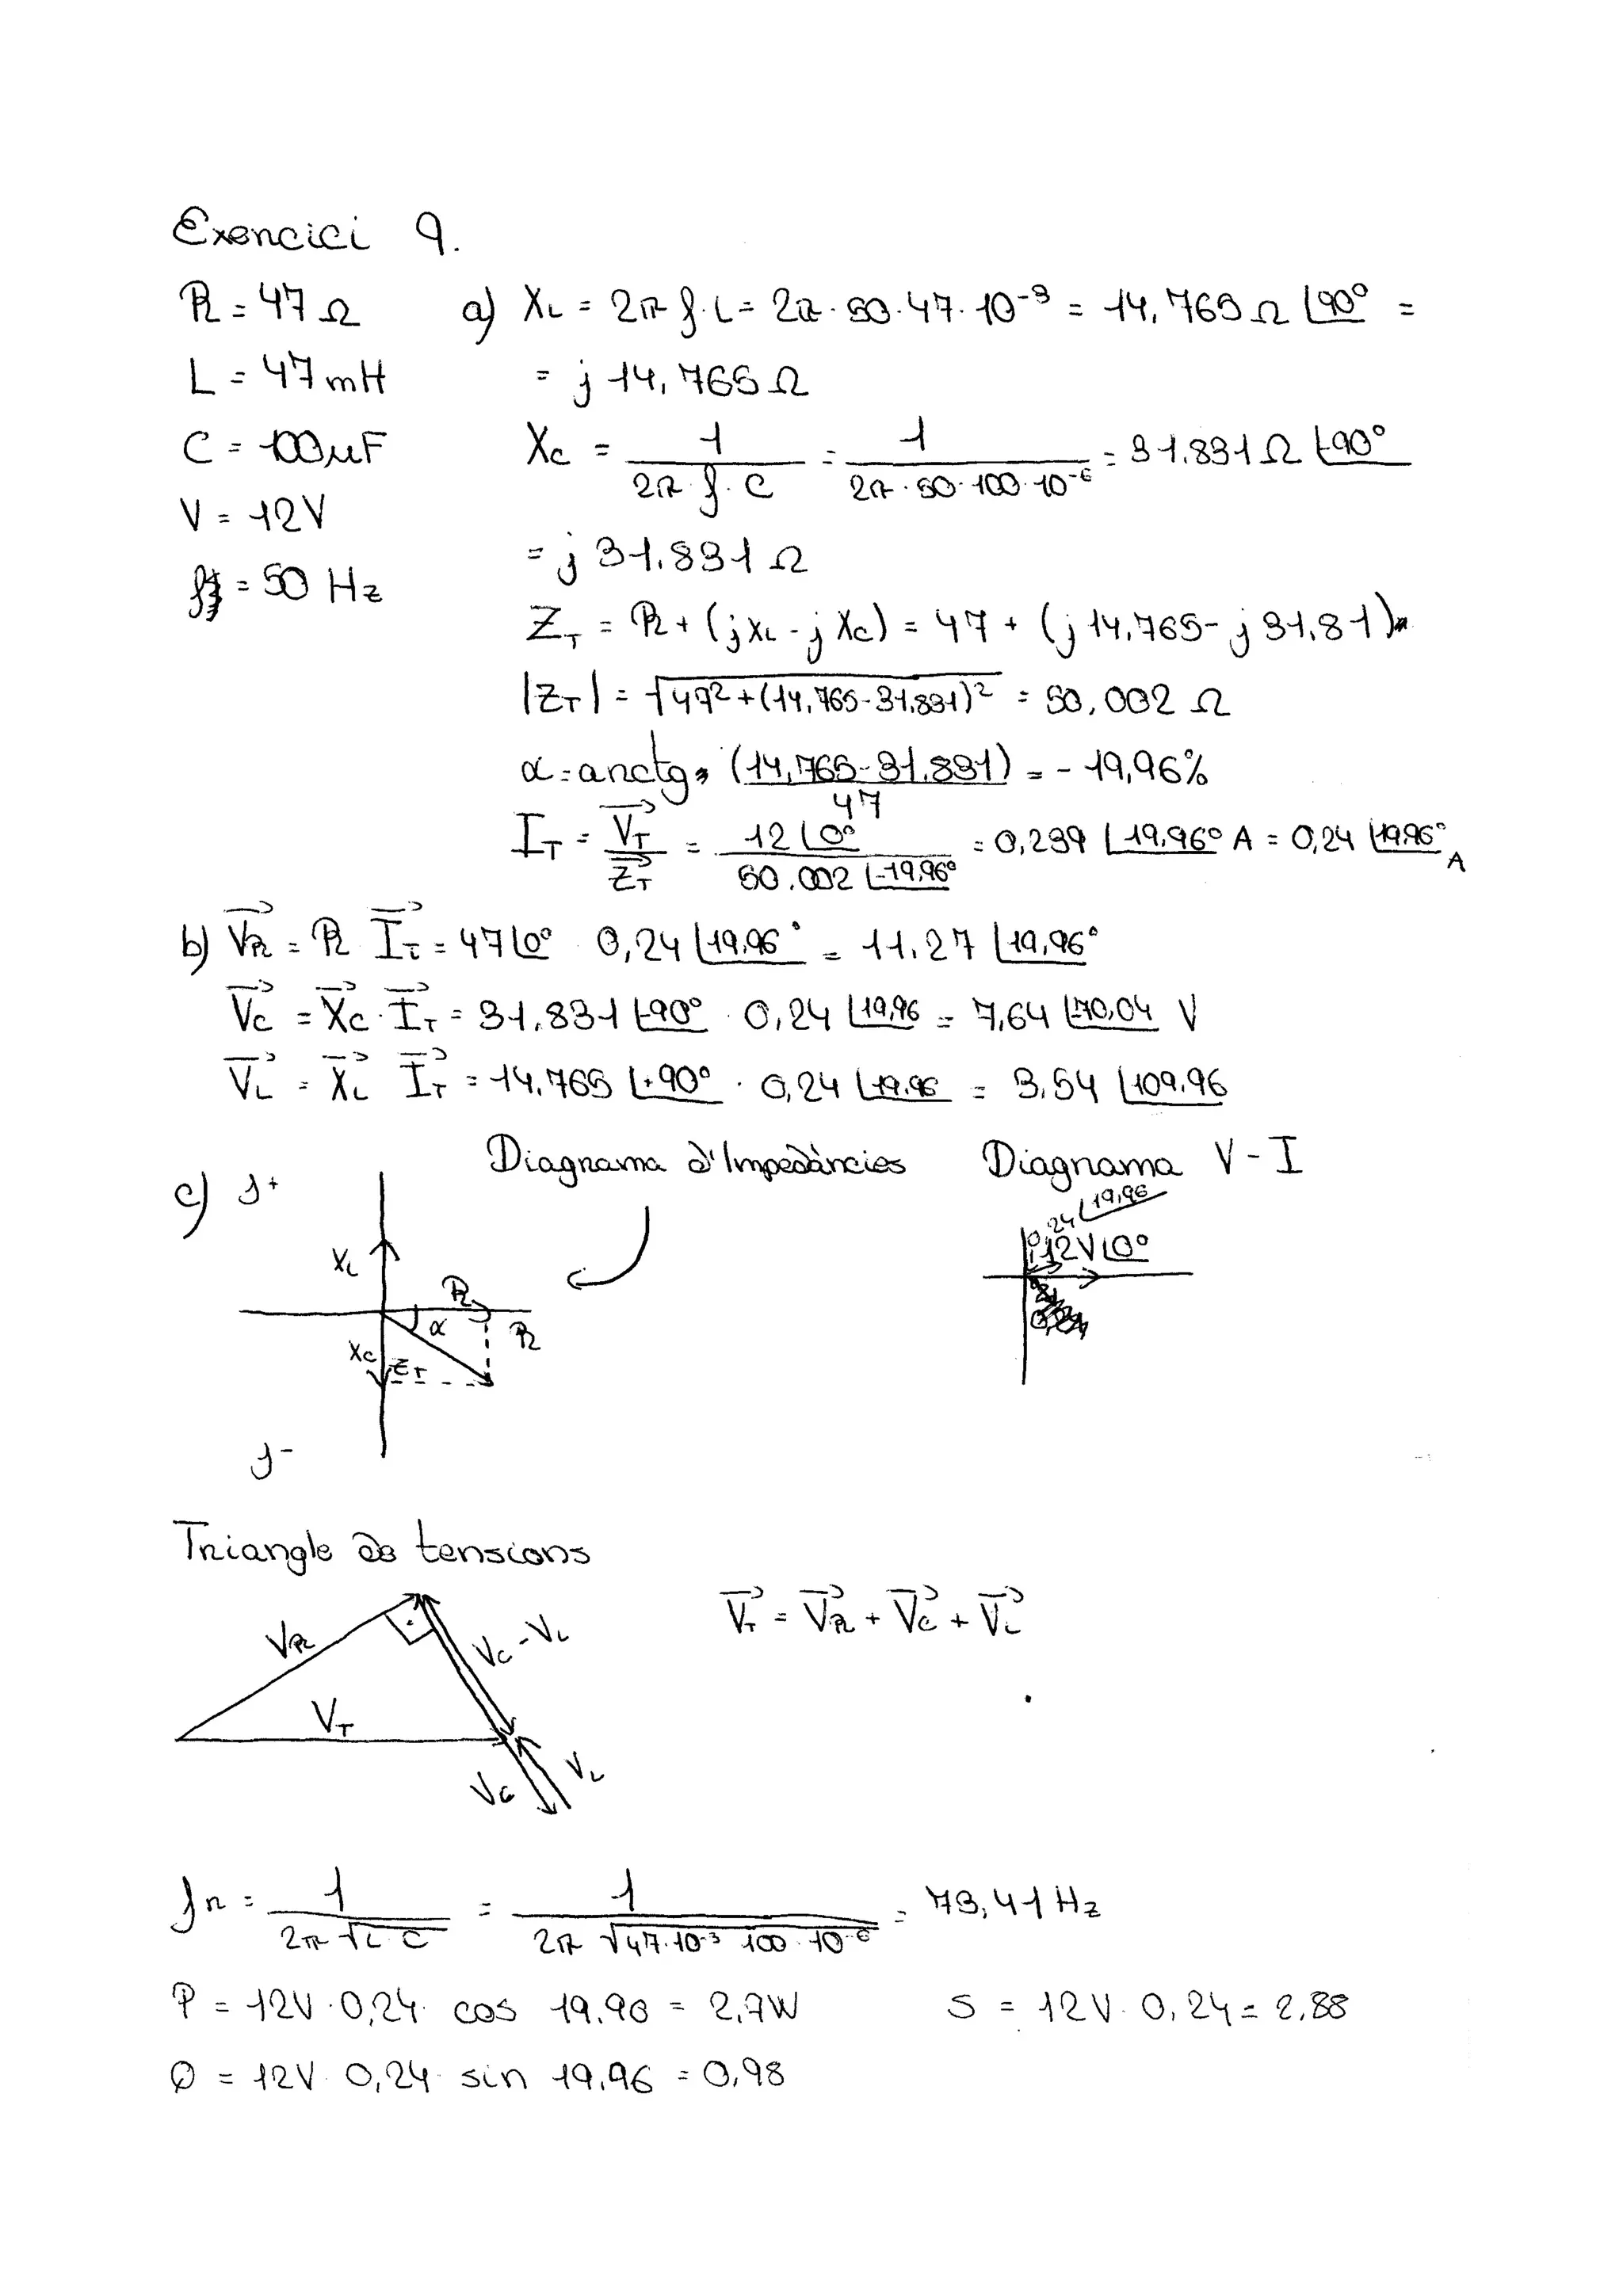 Exercici 9.
R = 47 Ω
a) XL = 2π f·L = 2π·50·47·10⁻³ = 14,765 Ω ∠90° =
L = 47 mH
= j 14,765 Ω
C = 100 μF
Xc = 1 / (2π·f·C) = 1 / (2π·50·100·10⁻⁶) = 31.831 Ω ∠-90°
V = 12V
= j 31.831 Ω
f = 50 Hz
Z_T = R + (jXL - jXc) = 47 + (j 14,765 - j 31,81)
|Z_T| = √(47² + (14,765-31,831)²) = 50,002 Ω
α = arctg (14,765-31.831) / 47 = -19,96%
I_T = V_T / Z_T = 12 ∠0° / 50.002 ∠-19,96° = 0,239 ∠19,96° A = 0,24 ∠19,96° A
b) V_R = R I_T = 47 ∠0° 0,24 ∠19,96° = 11.27 ∠19,96°
Vc = Xc · I_T = 31.831 ∠-90° · 0,24 ∠19,96 = 7,64 ∠-70,04 V
VL = XL I_T = 14.765 ∠+90° · 0,24 ∠19.96 = 3,54 ∠109,96
Diagrama d'Impedàncies
Diagrama V - I
c) j+
0,24 ∠19,96
12V ∠0°
XL
R
α
R
Xc
Z_T
j-
Triangle de tensions
V_T = V_R + Vc + VL
V_R
Vc - VL
V_T
VL
Vc
fr = 1 / (2π √(L·C)) = 1 / (2π √(47·10⁻³ 100·10⁻⁶)) = 73,41 Hz
P = 12V · 0,24 · cos 19.96 = 2,7W
S = 12V · 0,24 = 2,88
Q = 12V 0,24 · sin 19,96 = 0,98